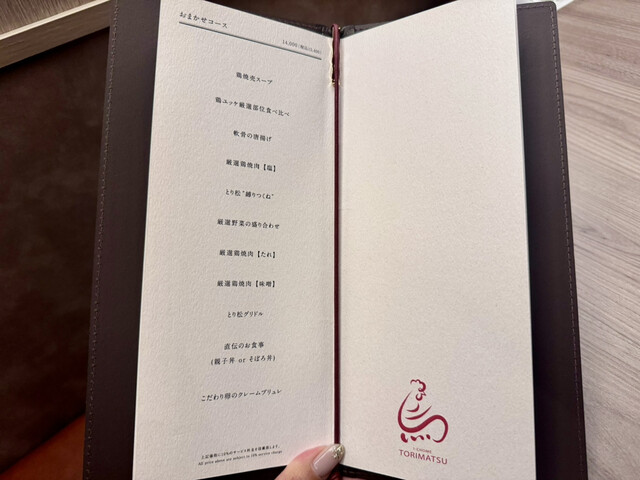 おまかせコース
14,000
鶏焼売スープ
鶏ユッケ厳選部位食べ比べ
軟骨の唐揚げ
厳選鶏焼肉【塩】
とり松"縛りつくね"
厳選野菜の盛り合わせ
厳選鶏焼肉【たれ】
厳選鶏焼肉【味噌】
とり松グリドル
直伝のお食事
(親子丼 or そぼろ丼)
こだわり卵のクレームブリュレ
All price above are subject to 10% service charge.
TORIMATSU